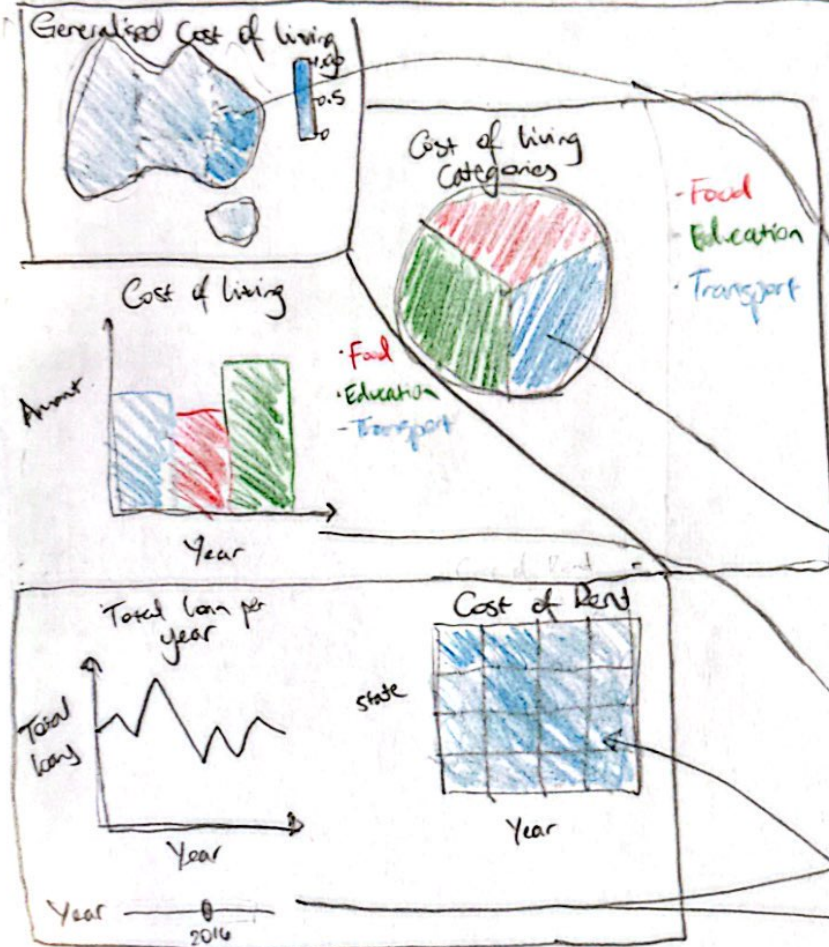 Generalised Cost of living
1.00
0.5
0
Cost of living
Categories
- Food
Education
- Transport
Cost of living
Amount
Year
- Food
- Education
- Transport
Total loan per
year
Total
loans
Year
Cost of Rent
State
Year
Year
2016